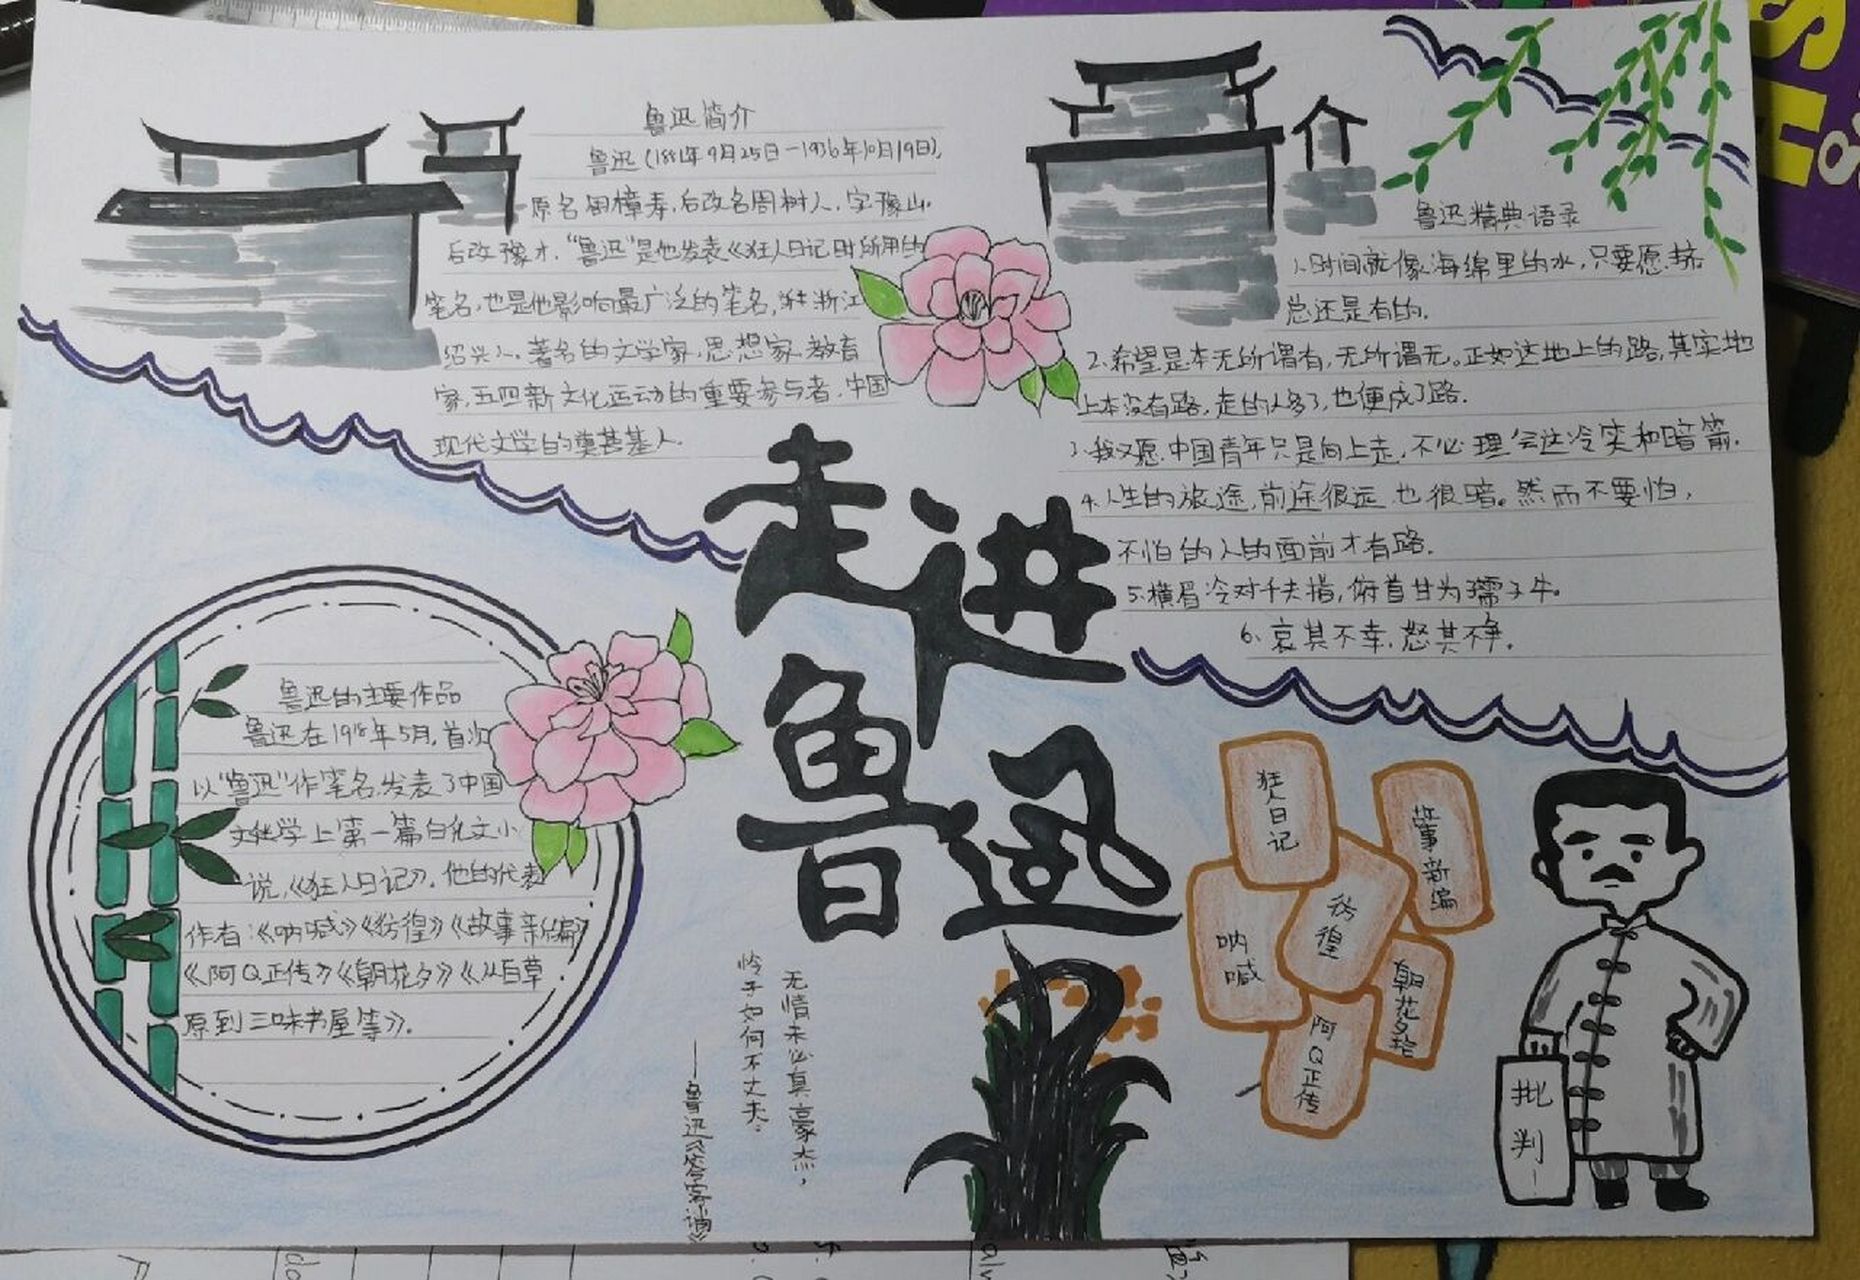 鲁迅简介
鲁迅(1881年9月25日一1936年10月19日),
原名周樟寿,后改名周树人,字豫山,
后改豫才,“鲁迅”是他发表《狂人日记时所用的
笔名,也是他影响最广泛的笔名,浙江
绍兴人。著名的文学家,思想家,教育
家,五四新文化运动的重要参与者,中国
现代文学的奠基人.
鲁迅精典语录
1.时间就像海绵里的水,只要愿挤
总还是有的.
2.希望是本无所谓有,无所谓无。正如这地上的路,其实地
上本没有路,走的人多了,也便成了路.
3.我又愿中国青年只是向上走,不必理会这冷笑和暗箭.
4.人生的旅途,前途很远,也很暗。然而不要怕,
不怕的人的面前才有路.
5.横眉冷对千夫指,俯首甘为孺子牛.
6、哀其不幸,怒其不争.
走进
鲁迅
鲁迅的主要作品
鲁迅在1918年5月,首次
以“鲁迅”作笔名,发表了中国
文学上第一篇白化文小
说,《狂人日记》.他的代表
作有:《呐喊》《彷徨》《故事新编》
《阿Q正传》《朝花夕》《从百草
原到三味书屋等》.
无情未必真豪杰,
怜子如何不丈夫.
——鲁迅《答客诮》
狂人日记
故事新编
彷徨
呐喊
朝花夕拾
阿Q正传
批判!